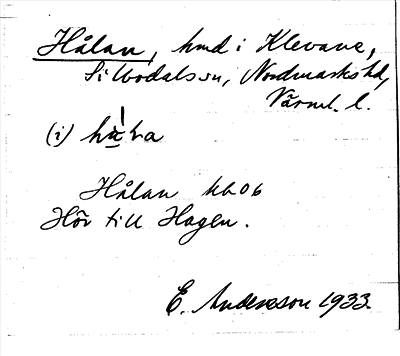 Hålan, hmd i Klevane,
Silbodals sn, Nordmarks hd,
Värml. l.
(i)
Hålan hb 06
Hör till Hagen.
E. Andersson 1933